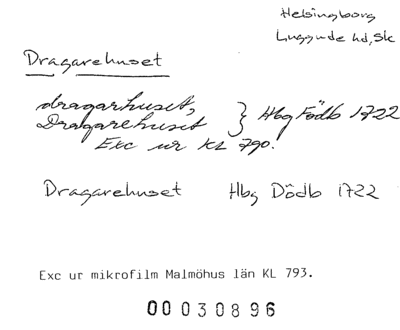 Helsingborg
Luggude hd, Sk
Dragarehuset
dragarhuset,
Dragarehuset } Hbg Födb 1722
Exc ur KL 790.
Dragarehuset Hbg Dödb 1722
Exc ur mikrofilm Malmöhus län KL 793.
00030896